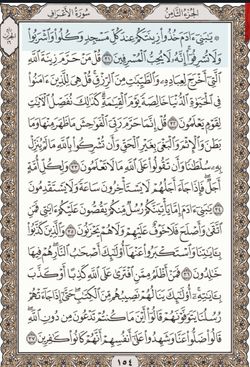 الجزء الثامن
سورة الأعراف
۞ يَٰبَنِىٓ ءَادَمَ خُذُوا۟ زِينَتَكُمْ عِندَ كُلِّ مَسْجِدٍ وَكُلُوا۟ وَٱشْرَبُوا۟
وَلَا تُسْرِفُوٓا۟ إِنَّهُۥ لَا يُحِبُّ ٱلْمُسْرِفِينَ ٣١ قُلْ مَنْ حَرَّمَ زِينَةَ ٱللَّهِ
ٱلَّتِىٓ أَخْرَجَ لِعِبَادِهِۦ وَٱلطَّيِّبَٰتِ مِنَ ٱلرِّزْقِ قُلْ هِىَ لِلَّذِينَ ءَامَنُوا۟
فِى ٱلْحَيَوٰةِ ٱلدُّنْيَا خَالِصَةً يَوْمَ ٱلْقِيَٰمَةِ كَذَٰلِكَ نُفَصِّلُ ٱلْءَايَٰتِ
لِقَوْمٍ يَعْلَمُونَ ٣٢ قُلْ إِنَّمَا حَرَّمَ رَبِّىَ ٱلْفَوَٰحِشَ مَا ظَهَرَ مِنْهَا وَمَا
بَطَنَ وَٱلْإِثْمَ وَٱلْبَغْىَ بِغَيْرِ ٱلْحَقِّ وَأَن تُشْرِكُوا۟ بِٱللَّهِ مَا لَمْ يُنَزِّلْ
بِهِۦ سُلْطَٰنًا وَأَن تَقُولُوا۟ عَلَى ٱللَّهِ مَا لَا تَعْلَمُونَ ٣٣ وَلِكُلِّ أُمَّةٍ
أَجَلٌ فَإِذَا جَآءَ أَجَلُهُمْ لَا يَسْتَأْخِرُونَ سَاعَةً وَلَا يَسْتَقْدِمُونَ
٣٤ يَٰبَنِىٓ ءَادَمَ إِمَّا يَأْتِيَنَّكُمْ رُسُلٌ مِّنكُمْ يَقُصُّونَ عَلَيْكُمْ ءَايَٰتِى
فَمَنِ ٱتَّقَىٰ وَأَصْلَحَ فَلَا خَوْفٌ عَلَيْهِمْ وَلَا هُمْ يَحْزَنُونَ ٣٥ وَٱلَّذِينَ كَذَّبُوا۟
بِـَٔايَٰتِنَا وَٱسْتَكْبَرُوا۟ عَنْهَآ أُو۟لَٰٓئِكَ أَصْحَٰبُ ٱلنَّارِ هُمْ فِيهَا
خَٰلِدُونَ ٣٦ فَمَنْ أَظْلَمُ مِمَّنِ ٱفْتَرَىٰ عَلَى ٱللَّهِ كَذِبًا أَوْ كَذَّبَ
بِـَٔايَٰتِهِۦٓ أُو۟لَٰٓئِكَ يَنَالُهُمْ نَصِيبُهُم مِّنَ ٱلْكِتَٰبِ حَتَّىٰٓ إِذَا جَآءَتْهُمْ
رُسُلُنَا يَتَوَفَّوْنَهُمْ قَالُوٓا۟ أَيْنَ مَا كُنتُمْ تَدْعُونَ مِن دُونِ ٱللَّهِ
قَالُوا۟ ضَلُّوا۟ عَنَّا وَشَهِدُوا۟ عَلَىٰٓ أَنفُسِهِمْ أَنَّهُمْ كَانُوا۟ كَٰفِرِينَ ٣٧
١٥٤